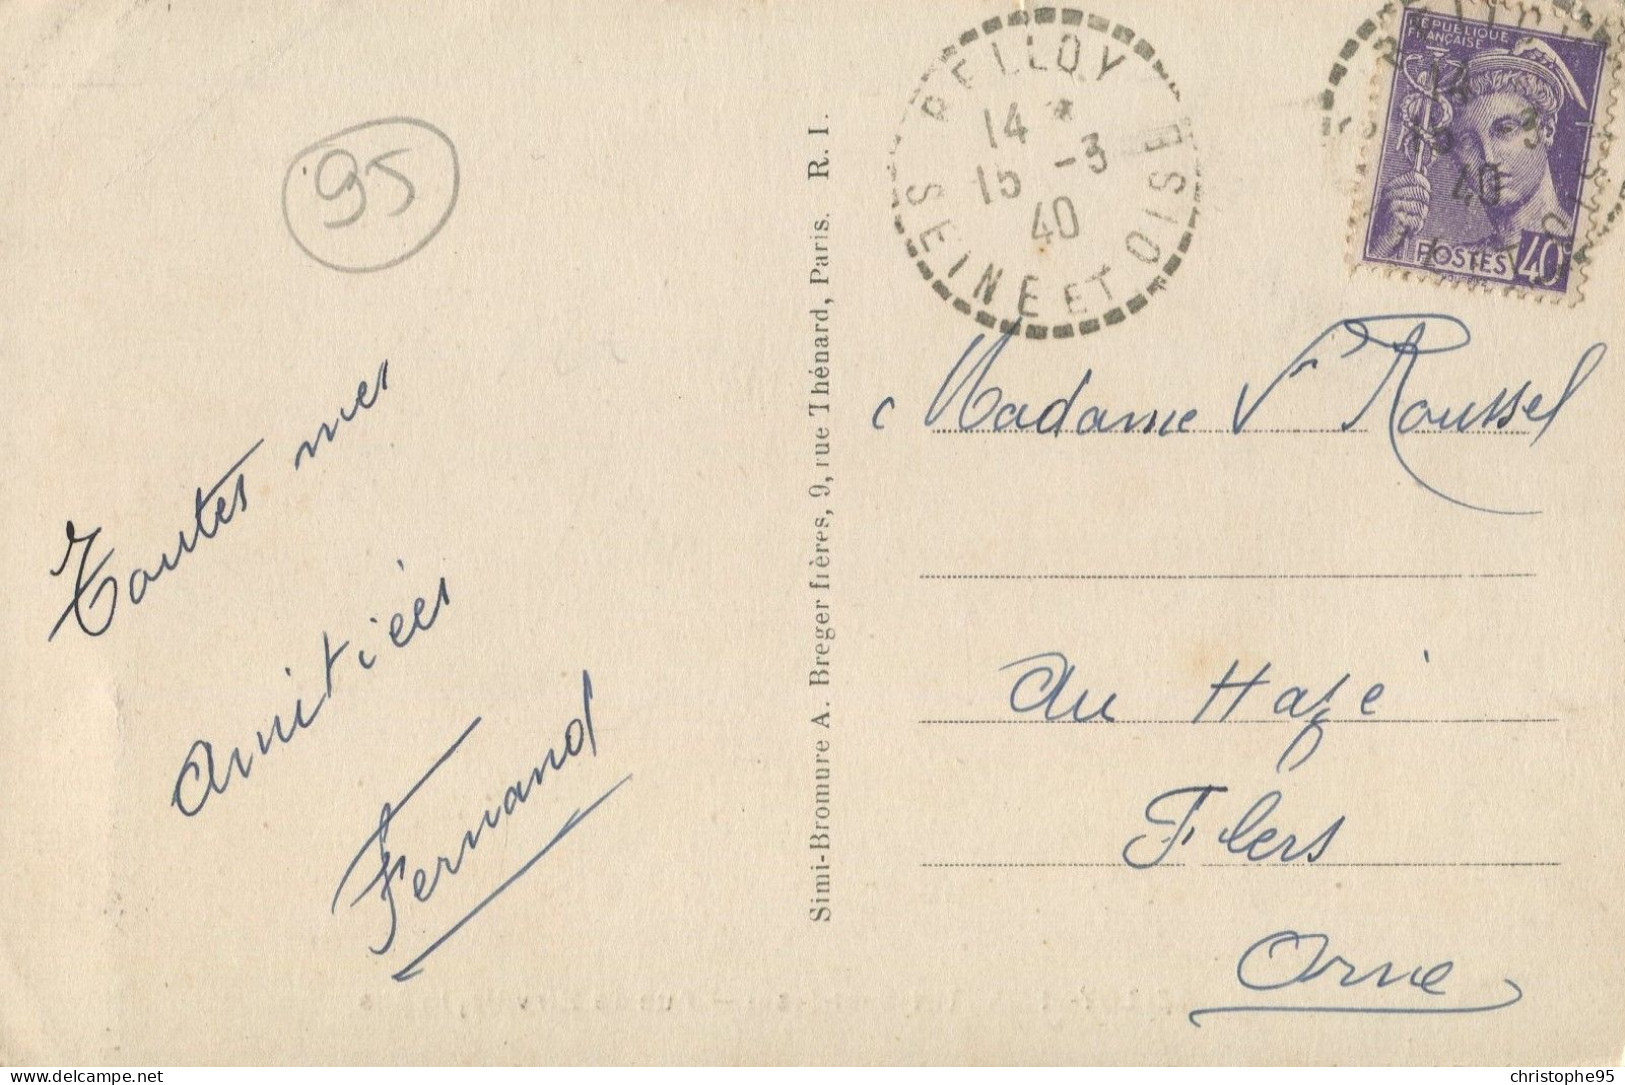 95
Toutes mes
Amitiées
Fernand
Simi-Bromure A. Breger frères, 9, rue Thénard, Paris. R. I.
BELLOY
14 *
15 -3
40
SEINE ET OISE
RÉPUBLIQUE
FRANÇAISE
14
15 3
40
POSTES 40c
Madame Vve Roussel
Au Hazé
Flers
Orne
christophe95